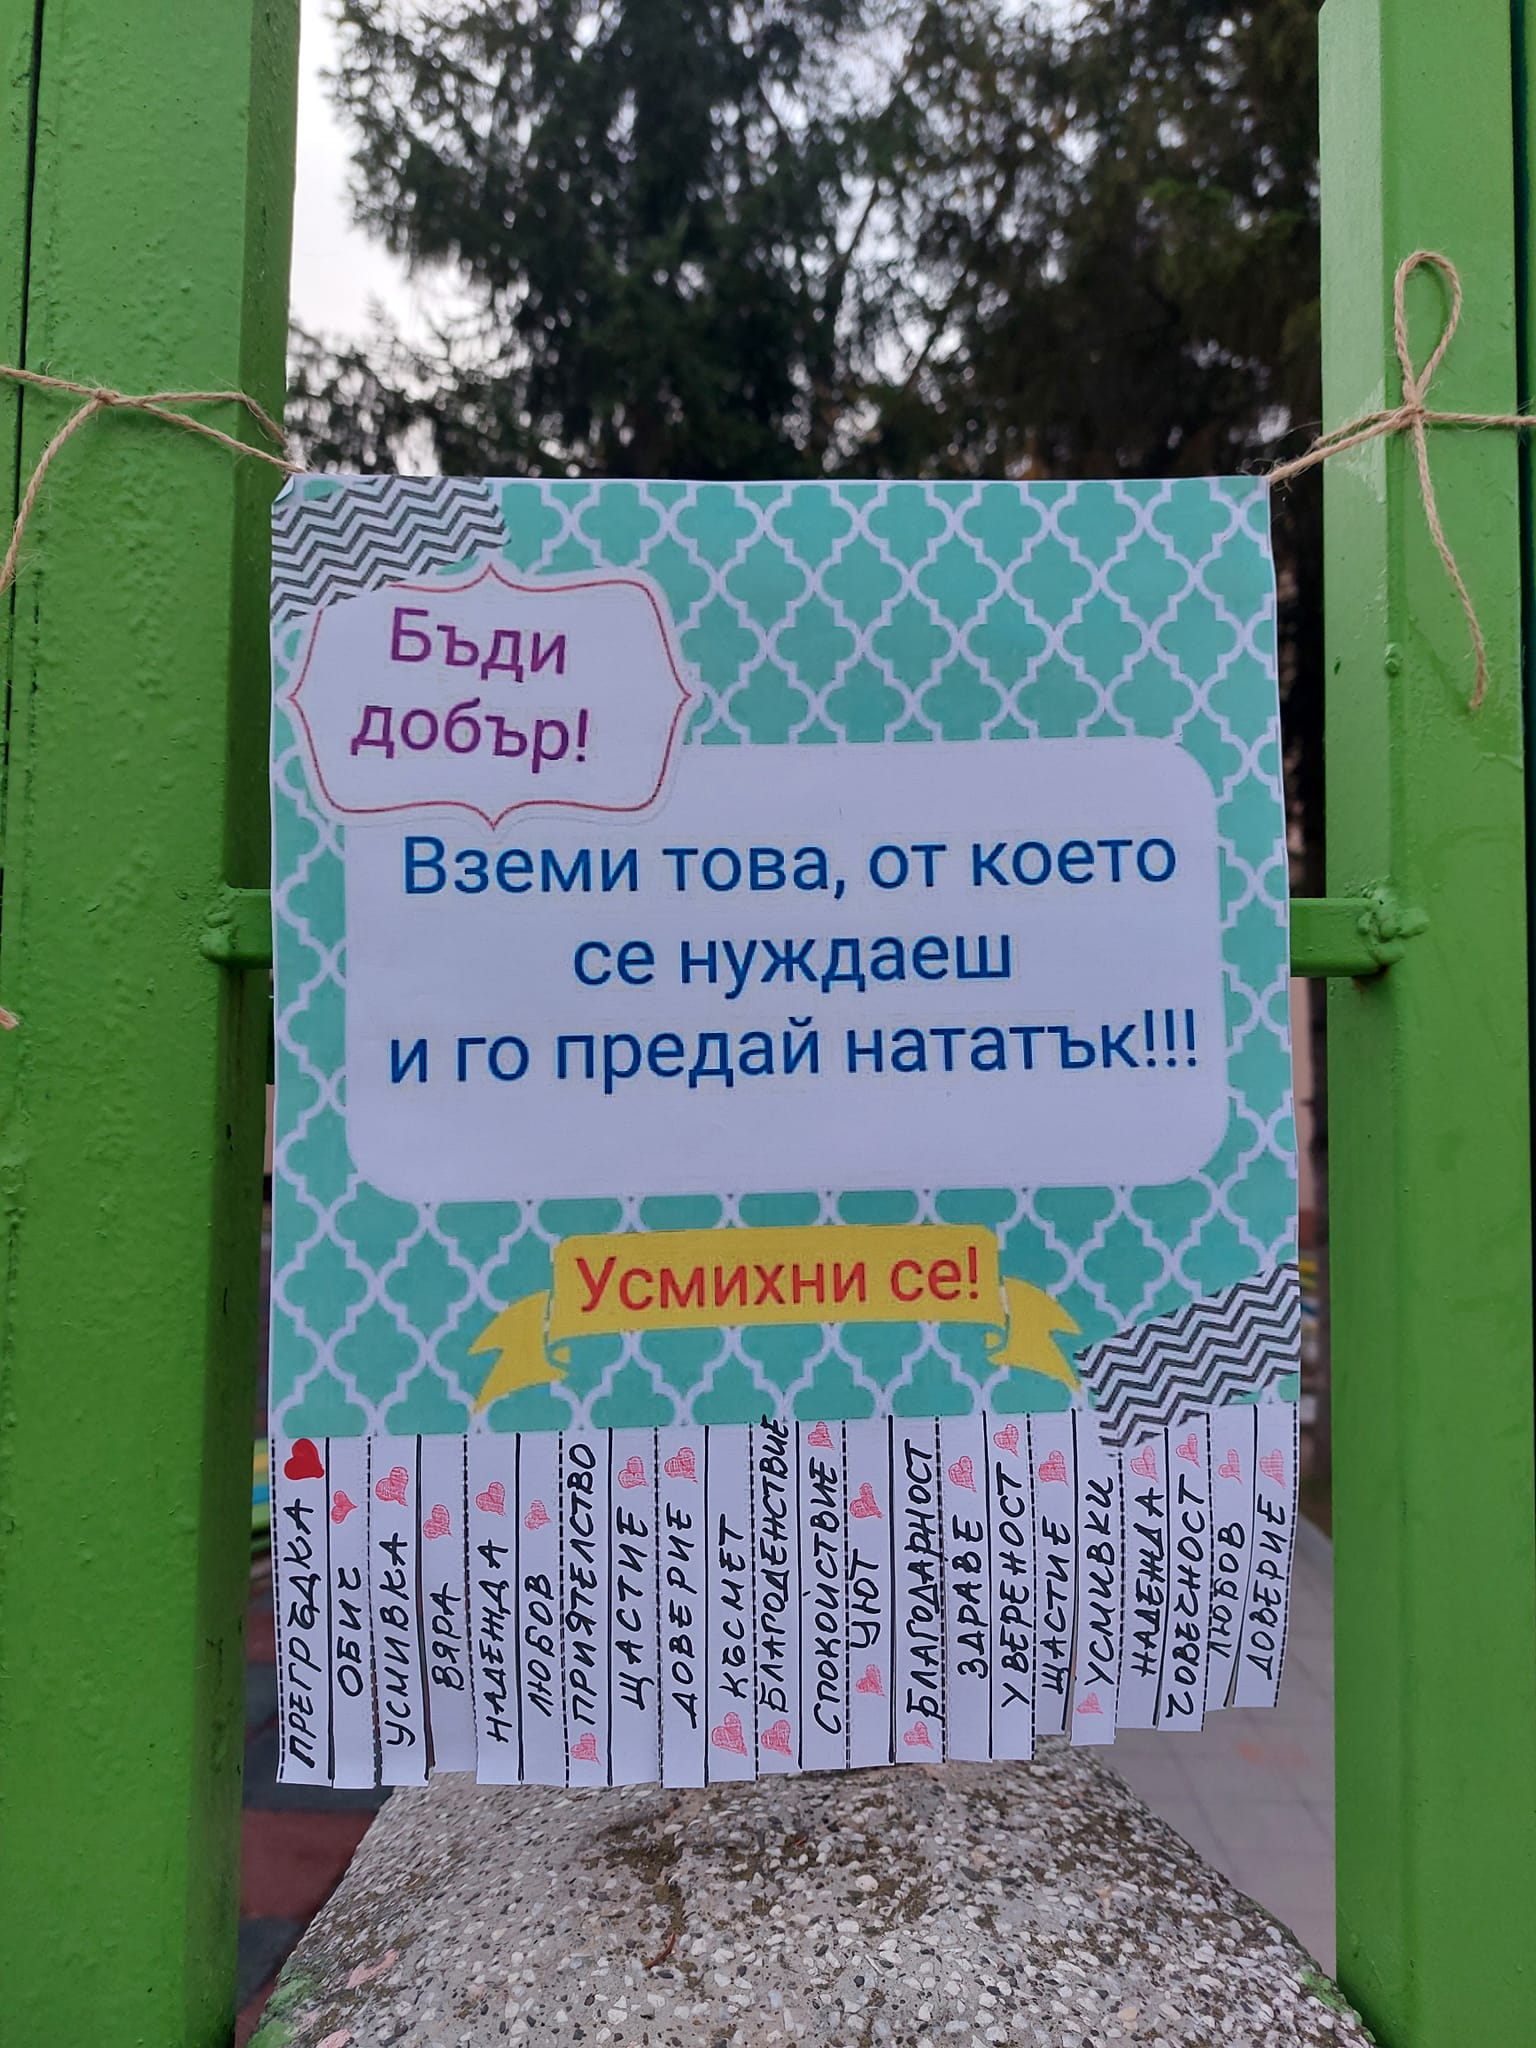 Бъди
добър!
Вземи това, от което
се нуждаеш
и го предай нататък!!!
Усмихни се!
ПРЕГРЪДКА
ОБИЧ
УСМИВКА
ВЯРА
НАДЕЖДА
ЛЮБОВ
ПРИЯТЕЛСТВО
ЩАСТИЕ
ДОВЕРИЕ
КЪСМЕТ
БЛАГОДЕНСТВИЕ
СПОКОЙСТВИЕ
УЮТ
БЛАГОДАРНОСТ
ЗДРАВЕ
УВЕРЕНОСТ
ЩАСТИЕ
УСМИВКИ
НАДЕЖДА
ЧОВЕЧНОСТ
ЛЮБОВ
ДОВЕРИЕ